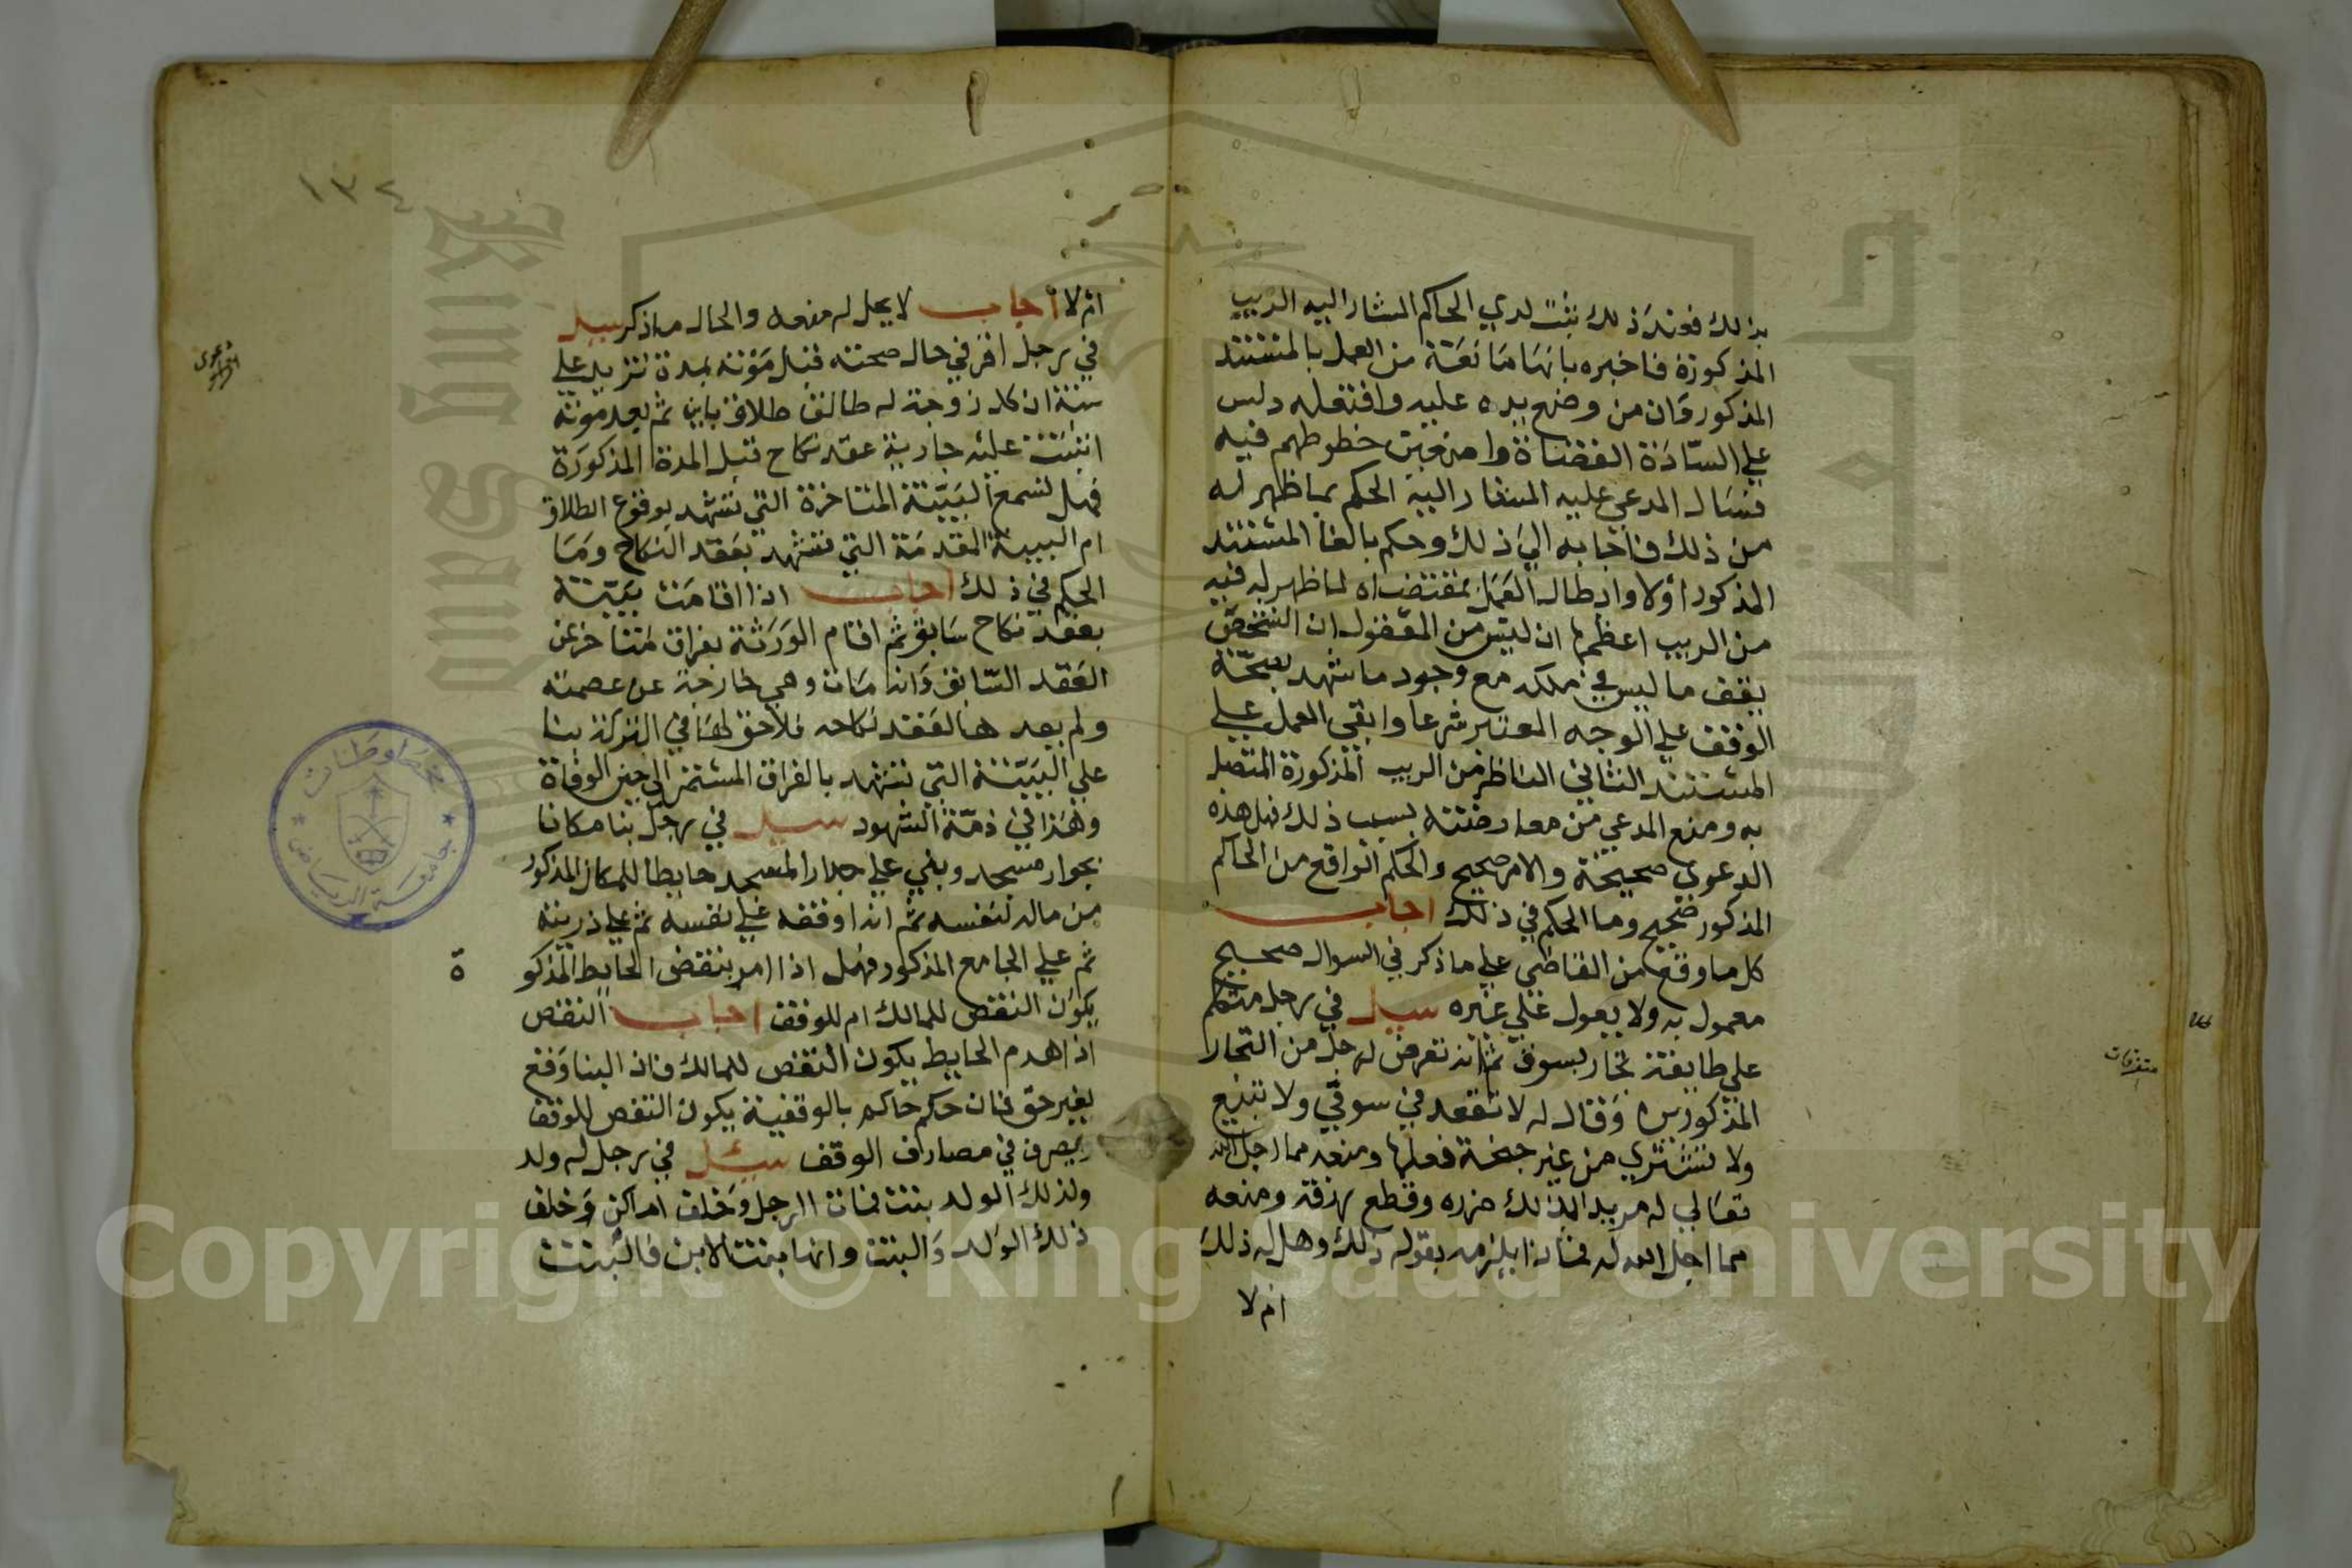 بذلك فعند ذلك ثبت لدي الحاكم المشار اليه الريب
المذكورة فاخبره بانها مانعة من العمل بالمستند
المذكور وان من وضع يده عليه وافتعله دلس
علي السادة القضاة وا خطوطهم فيه
فسال المدعي عليه المشار اليه الحكم بما ظهر له
من ذلك فاجابه الي ذلك وحكم بالغا المستند
المذكور اولا وابطال العمل بمقتضاه لما ظهر له فيه
من الريب اعظمها ان ليس من المعقول ان الشخص
يقف ما ليس في ملكه مع وجود ما شهد بصحة
الوقف علي الوجه المعتبر شرعا وابقي العمل علي
المستند الثاني من الريب المذكورة المتصل
به ومنع المدعي من معارضته بسبب ذلك فهل هذه
الدعوي صحيحة والامر صحيح والحكم الواقع من الحاكم
المذكور صحيح وما الحكم في ذلك اجاب
كل ما وقع من القاضي علي ما ذكر في السوال صحيح
معمول به ولا يعول علي غيره سيل في رجل متكلم
علي طايفة تجار بسوق ثم انه تعرض لرجل من التجار
المذكورين وقال له لا تقعد في سوقي ولا تبيع
ولا تشتري من غير جنحة فعلها ومنعه مما احل الله
تعالي له مريدا بذلك ضرره وقطع رزقه ومنعه
مما احل الله له فماذا يلزمه بقوله ذلك وهل له ذلك
ام لا
متفرقات
١٣٤
ام لا اجاب لا يحل له منعه والحال ما ذكر سيل
في رجل اقر في حال صحته قبل موته بمدة تزيد علي
سنة ان كل زوجة له طالق طلاق باين ثم بعد موته
اثبتت عليه جارية عقد نكاح قبل المدة المذكورة
فهل تسمع البينة المتاخرة التي تشهد بوقوع الطلاق
ام البينة المقدمة التي تشهد بعقد النكاح وما
الحكم في ذلك اجاب اذا اقامت بينة
بعقد نكاح سابق ثم اقام الورثة بفراق متاخر عن
العقد السابق وانه مات وهي خارجة عن عصمته
ولم يعدها لعقد نكاحه فلا حق لها في التركة بنا
علي البينة التي تشهد بالفراق المستمر الي حين الوفاة
وهذا في ذمة الشهود سيل في رجل بنا مكانا
بجوار مسجد وبني علي جدار المسجد حايطا للمكان المذكور
من ماله لنفسه ثم انه اوقفه علي نفسه ثم علي ذريته
ثم علي الجامع المذكور فهل اذا امر بنقض الحايط المذكو
ة
يكون النقض للمالك ام للوقف اجاب النقض
اذا هدم الحايط يكون النقض للمالك فان البنا وقع
بغير حق فان حكم حاكم بالوقفية يكون النقض للوقف
يصرف في مصارف الوقف سيل في رجل له ولد
ولذلك الولد بنت فمات الرجل وخلف اماكن وخلف
ذلك الولد والبنت وانها بنت الابن فالبنت
مخطوطات
جامعة الرياض
Copyright © King Saud University
King Saud